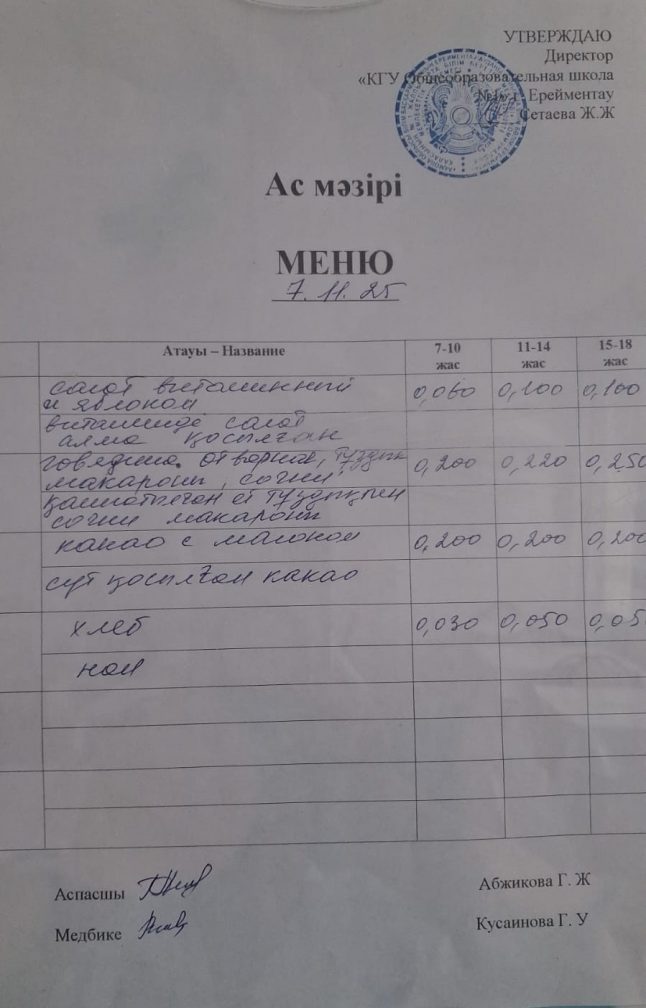 УТВЕРЖДАЮ
Директор
«КГУ Общеобразовательная школа
№1» г. Ерейментау
Сетаева Ж.Ж
Ас мәзірі
МЕНЮ
7. 11. 25
Атауы – Название 7-10 жас 11-14 жас 15-18 жас
салат витаминный 0,060 0,100 0,100
и яблокой
витаминді салат
алма қосылған
говядина отварная, тұздық 0,200 0,220 0,250
макароны, сочни
қайнатылған ет тұздықпен
сочни макароны
какао с молоком 0,200 0,200 0,200
сүт қосылған какао
хлеб 0,030 0,050 0,05
нан
Аспасшы Абжикова Г. Ж
Медбике Кусаинова Г. У